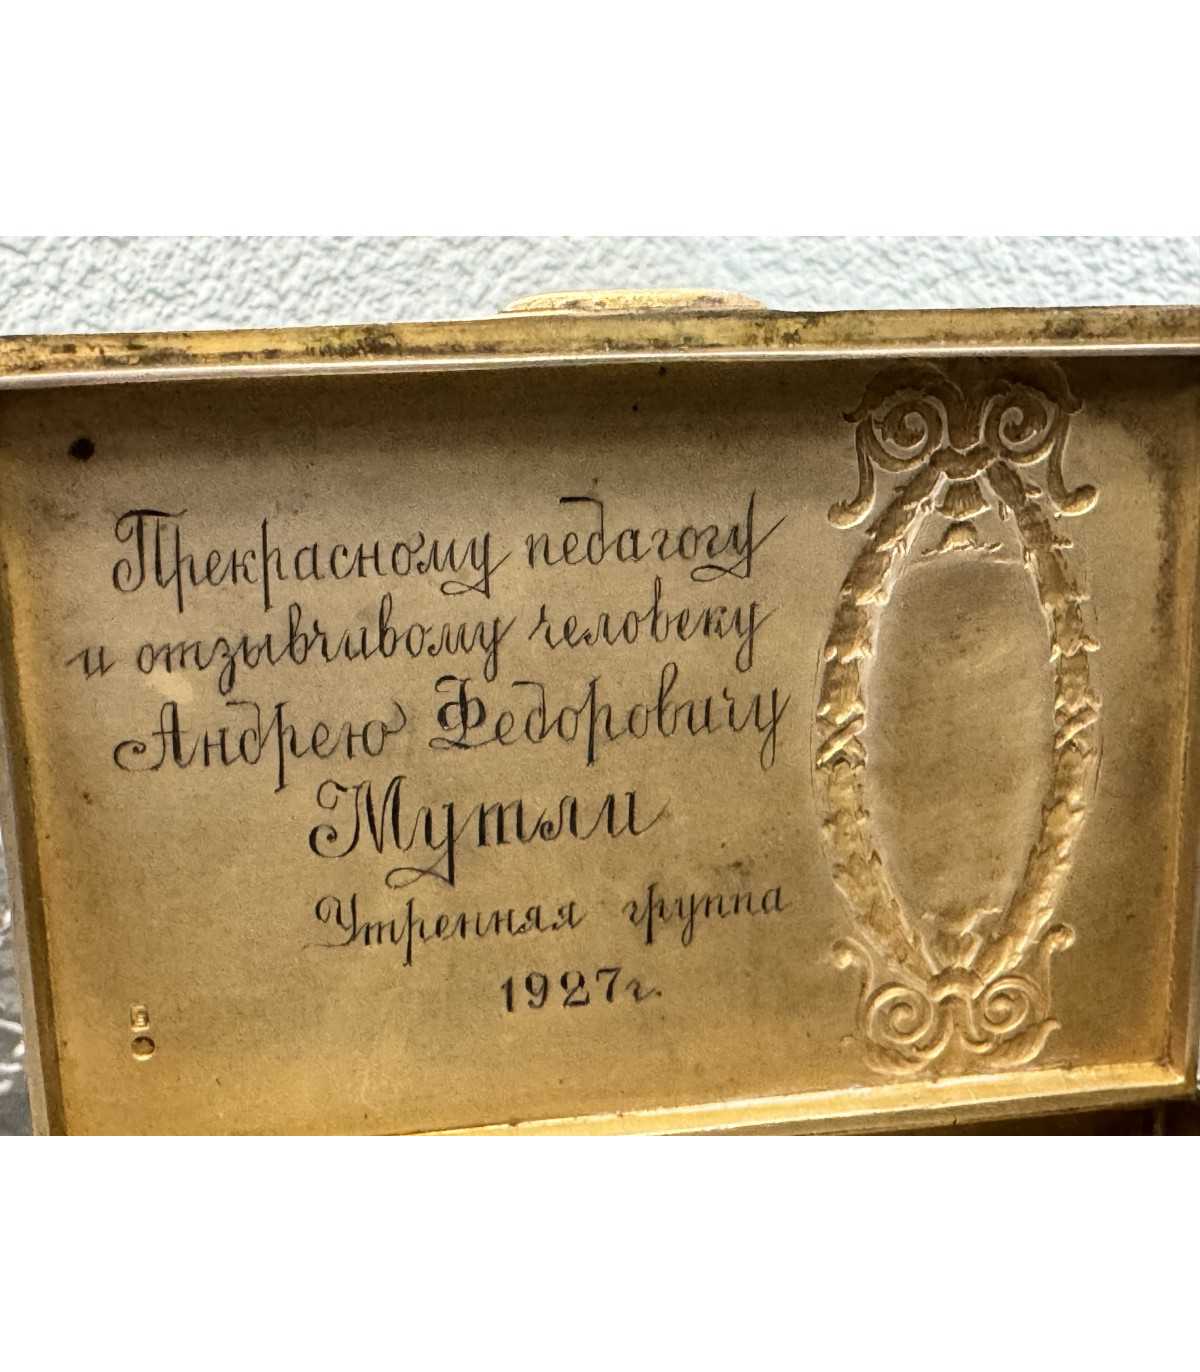 Прекрасному педагогу
и отзывчивому человеку
Андрею Федоровичу
Мутли
Утренняя группа
1927 г.